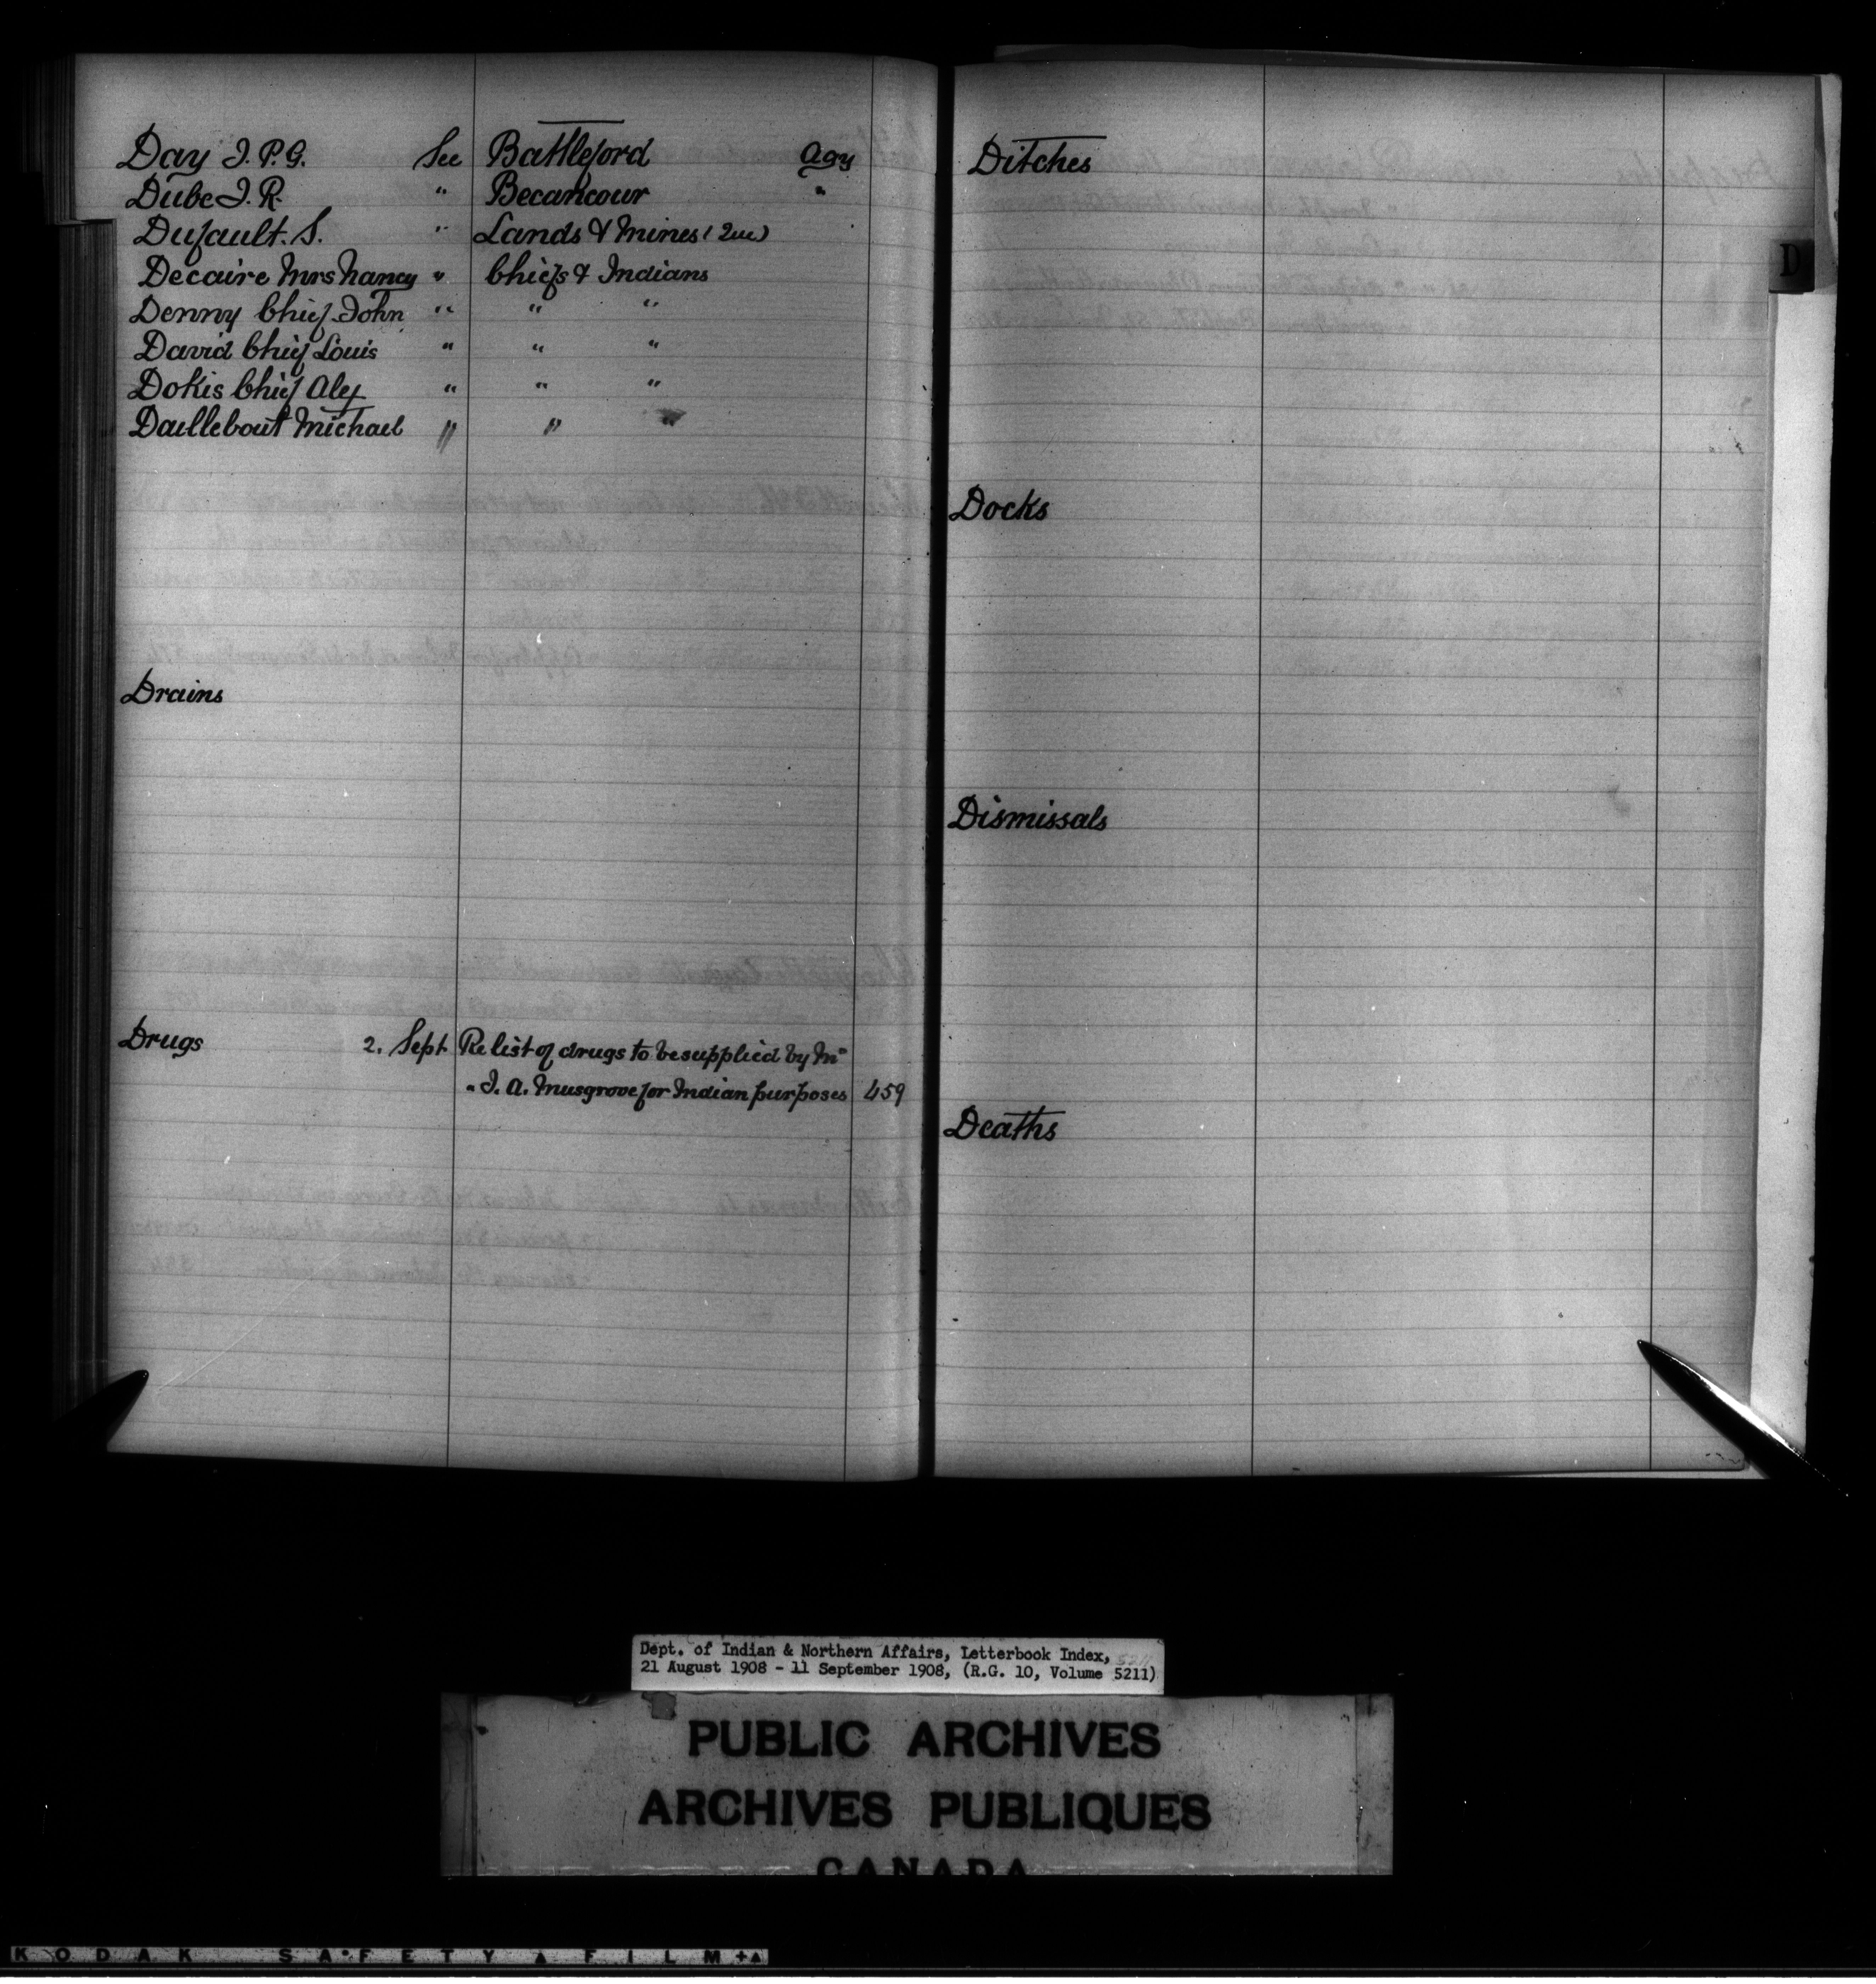 Day J. P. G. See Battleford Agy
Dube J. R. " Becancour "
Dufault. S. " Lands & Mines (Que)
Decaire Mrs Nancy " Chiefs & Indians
Denny Chief John " " "
David Chief Louis " " "
Dokis Chief Alex " " "
Daillebout Michael " " "
Drains
Drugs 2. Sept Re list of drugs to be supplied by Mr
" J. A. Musgrove for Indian purposes 459
Ditches
D
Docks
Dismissals
Deaths
Dept. of Indian & Northern Affairs, Letterbook Index,
21 August 1908 - 11 September 1908, (R.G. 10, Volume 5211)
PUBLIC ARCHIVES
ARCHIVES PUBLIQUES
CANADA
KODAK SAFETY FILM